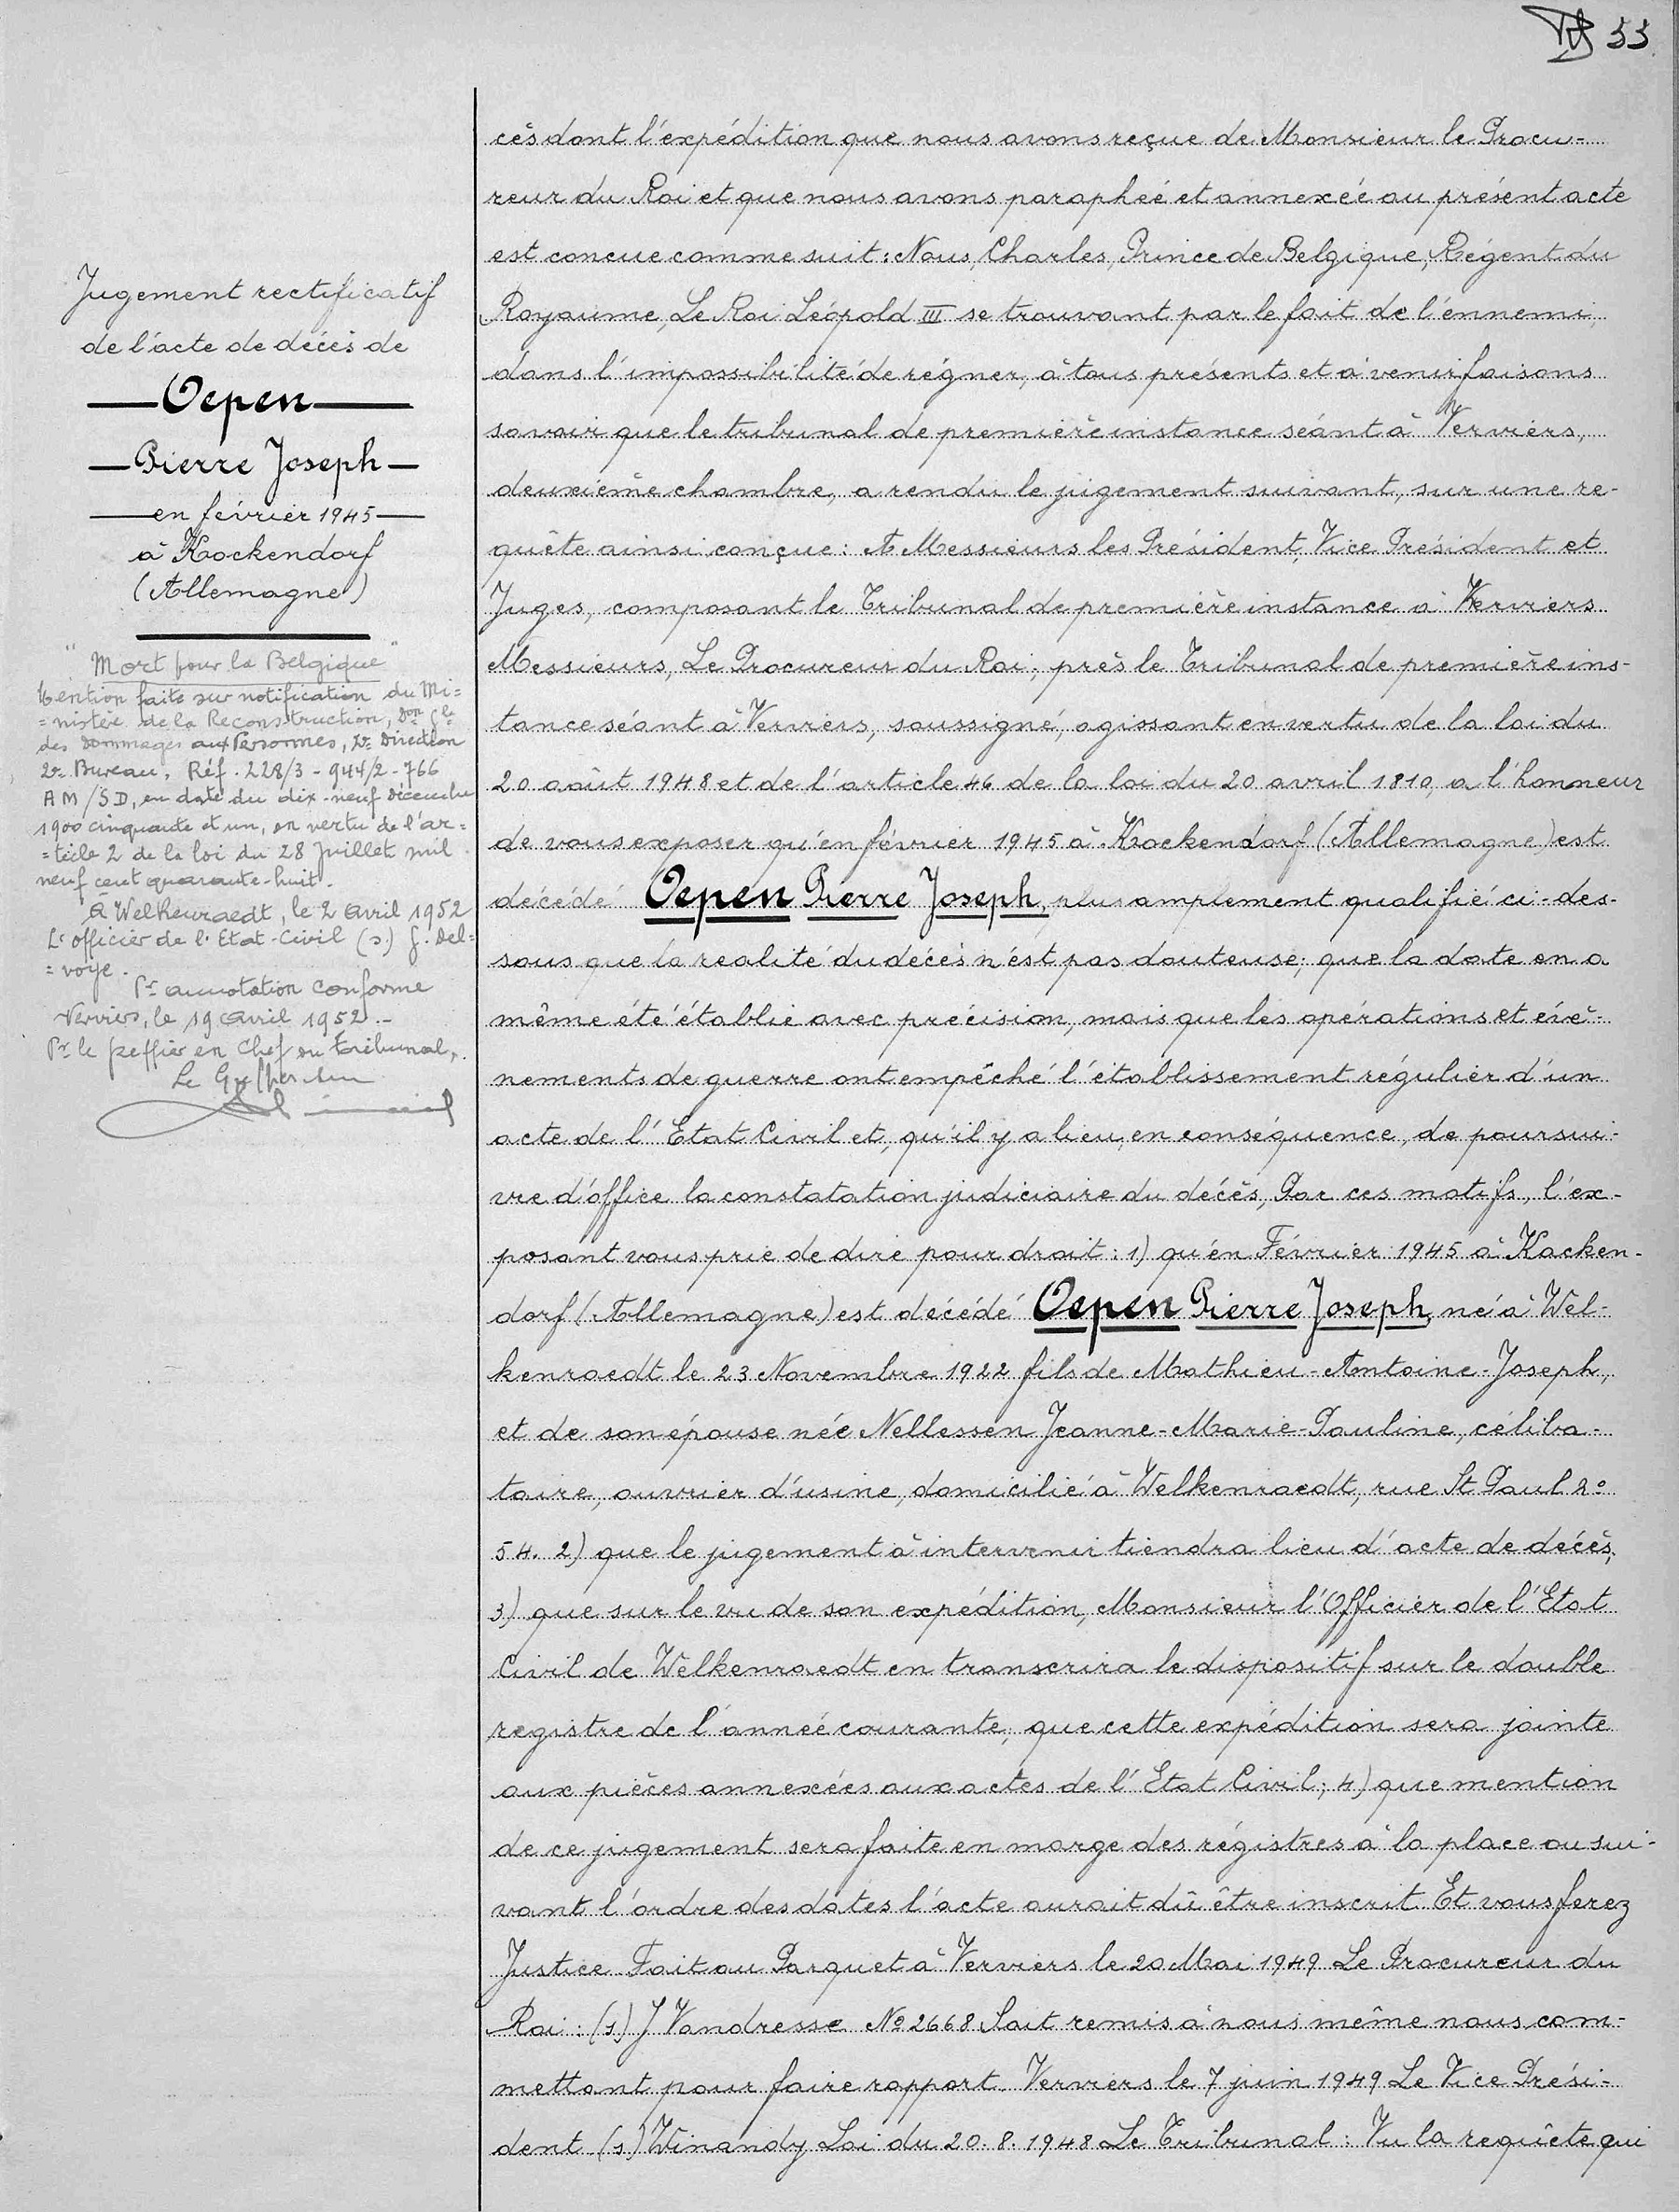 33
Jugement rectificatif
de l'acte de décès de
Oepen
Pierre Joseph
en février 1945
à Kockendorf
(Allemagne)
"Mort pour la Belgique"
Mention faite sur notification du Mi=
=nistère de la Reconstruction, Don Gle
des Dommages aux Personnes, 2e Direction
2e Bureau, Réf. 228/3 - 944/2 - 766
AM/SD, en date du dix-neuf décembre
1900 cinquante et un, en vertu de l'ar=
=ticle 2 de la loi du 28 Juillet mil
neuf cent quarante-huit.
à Welkenraedt, le 2 avril 1952
L'officier de l'Etat-Civil (s.) J. Del=
=voye.
Pr annotation conforme
Verviers, le 19 avril 1952.-
Pr le greffier en Chef du tribunal,
Le
cès dont l'expédition que nous avons reçue de Monsieur le Procu-
reur du Roi et que nous avons paraphéé et annexéé au présent acte
est concue comme suit: Nous, Charles, Prince de Belgique, Régent du
Royaume, Le Roi Léopold III se trouvant par le fait de l'énnemi,
dans l'impossibilité de régner, à tous présents et à venir faisons
savoir que le tribunal de première instance séant à Verviers,
deuxième chambre, a rendu le jugement suivant, sur une re-
quête ainsi conçue: A Messieurs les Président, Vice Président et
Juges, composant le Tribunal de première instance à Verviers
Messieurs, Le Procureur du Roi, près le Tribunal de première ins-
tance séant à Verviers, soussigné, agissant en vertu de la loi du
20 août 1948 et de l'article 46 de la loi du 20 avril 1810, a l'honneur
de vous exposer qu'én février 1945 à Kockendorf (Allemagne) est
décédé Oepen Pierre Joseph, plus amplement qualifié ci-des-
sous que la realité du décès n'ést pas douteuse; que la date en a
même été établie avec précision, mais que les opérations et évé-
nements de guerre ont empêché l'établissement régulier d'un
acte de l'Etat Civil et, qu'il y a lieu, en conséquence, de poursui-
vre d'office la constatation judiciaire du décès, Par ces motifs, l'ex-
posant vous prie de dire pour droit: 1) qu'én Février 1945 à Kacken-
dorf (Allemagne) est décédé Oepen Pierre Joseph, né à Wel-
kenraedt le 23 Novembre 1922 fils de Mathieu-Antoine-Joseph,
et de son épouse née Nellessen Jeanne-Marie-Pauline, céliba-
taire, ouvrier d'usine, domicilié à Welkenraedt, rue St Paul no
54. 2) que le jugement à intervenir tiendra lieu d'acte de décès,
3) que sur le vu de son expédition, Monsieur l'Officier de l'Etat
Civil de Welkenraedt en transcrira le dispositif sur le double
registre de l'année courante; que cette expédition sera jointe
aux pièces annexées aux actes de l'Etat Civil; 4) que mention
de ce jugement sera faite en marge des régistres à la place ou sui-
vant l'ordre des dates l'acte aurait dû être inscrit. Et vous ferez
Justice Fait au Parquet à Verviers le 20 Mai 1949 Le Procureur du
Roi: (s.) J Vandresse No 2668 Soit remis à nous même nous com-
mettant pour faire rapport. Verviers le 7 juin 1949 Le Vice Prési-
dent (s.) Winandy Loi du 20.8.1948 Le Tribunal: Vu la requête qui